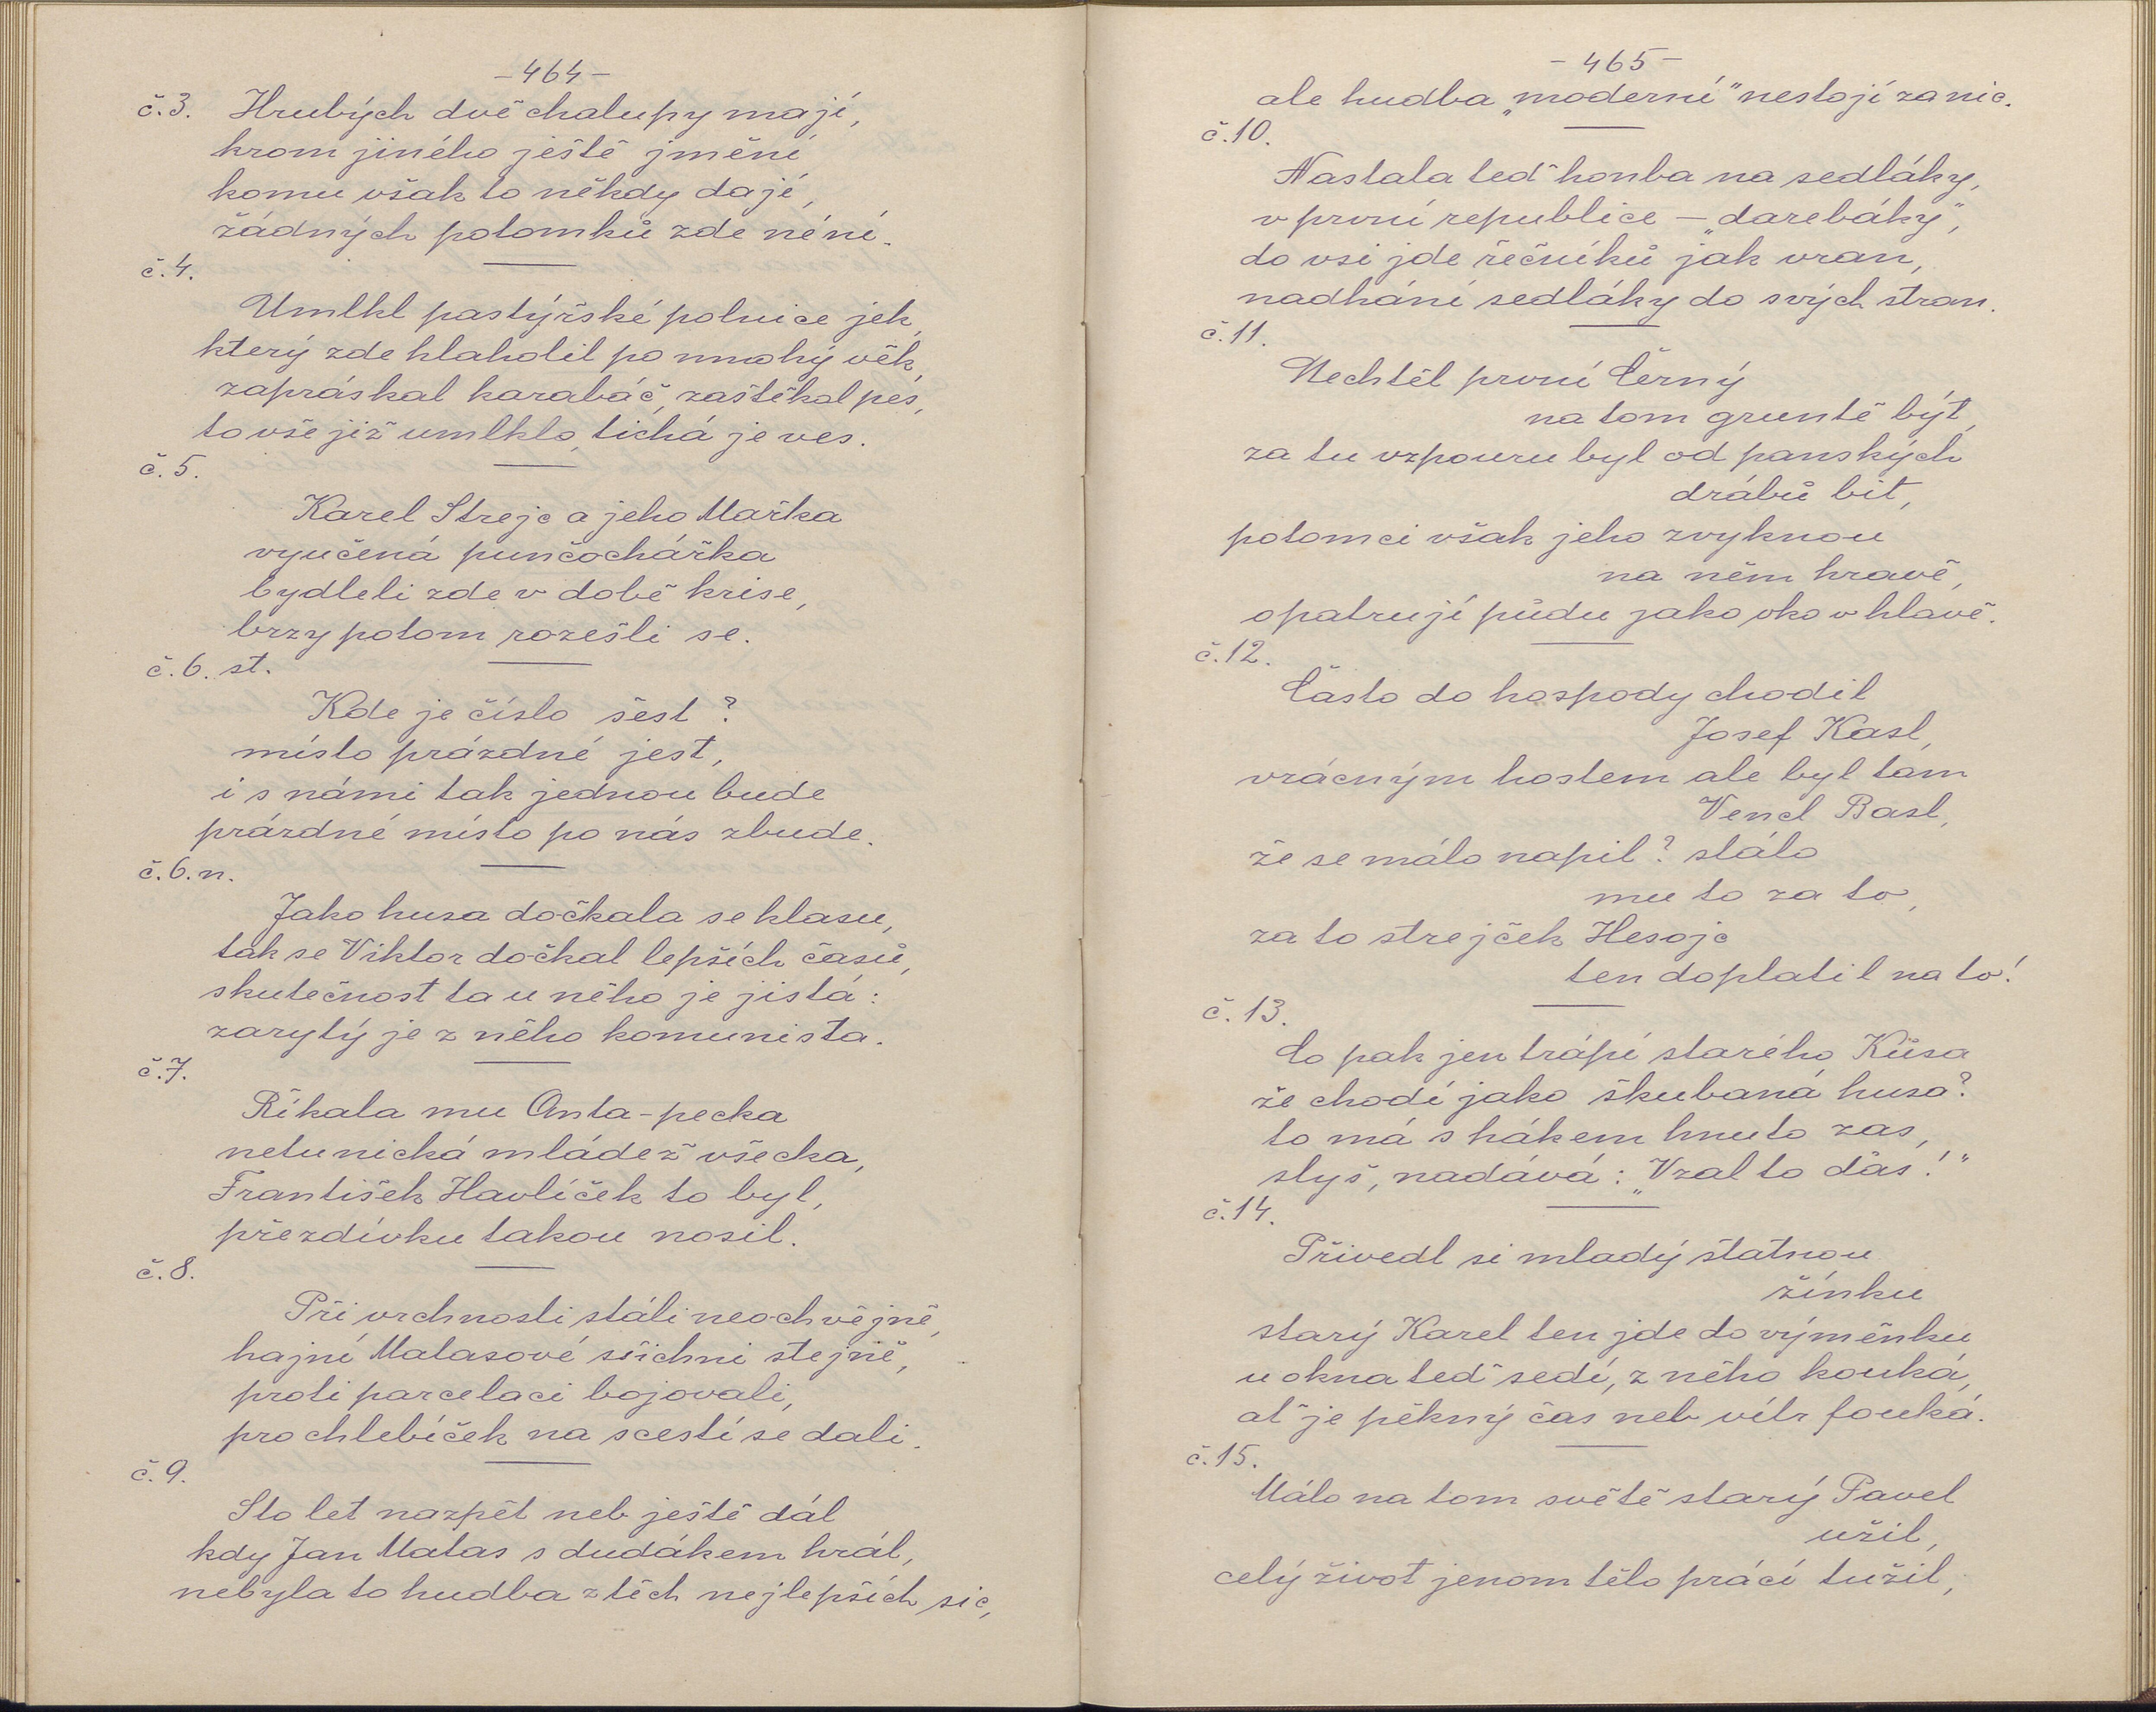 - 464 -
č.3. Hrubých dvě chalupy mají,
krom jiného ještě jmění
komu však to někdy dají,
žádných potomků zde néní.
č.4.
Umlkl pastýřské polnice jek,
který zde hlaholil po mnohý věk,
zapráskal karabáč, zaštěkal pes,
to vše již umlklo, tichá je ves.
č.5.
Karel Strejc a jeho Mařka
vyučená punčochářka
bydleli zde v době krise,
brzy potom rozešli se.
č.6. st.
Kde je číslo šest?
místo prázdné jest,
i s námi tak jednou bude
prázdné místo po nás zbude.
č.6.n.
Jako husa dočkala se klasu,
tak se Viktor dočkal lepších časů,
skutečnost ta u něho je jistá:
zarytý je z něho komunista.
č.7.
Říkala mu Anta-pecka
netunická mládež všecka,
František Havlíček to byl,
přezdívku takou nosil.
č.8.
Při vrchnosti stáli neochvějně,
hajní Malasové sšichni stejně,
proti parcelaci bojovali,
pro chlebíček na scestí se dali.
č.9.
Sto let nazpět neb ještě dál
kdy Jan Malas s dudákem hrál,
nebyla to hudba z těch nejlepších sic,
- 465 -
ale hudba „moderní" nestojí za nic.
č.10.
Nastala teď honba na sedláky,
v první republice – „darebáky",
do vsi jde řečníků jak vran,
nadhání sedláky do svých stran.
č.11.
Nechtěl první Černý
na tom gruntě být,
za tu vzpouru byl od panských
drábů bit,
potomci však jeho zvyknou
na něm hravě,
opatrují půdu jako oko v hlavě.
č.12.
Často do hospody chodil
Josef Kasl,
vzácným hostem ale byl tam
Vencl Basl,
že se málo napil? stálo
mu to za to,
za to strejček Hesojc
ten doplatil na to!
č.13.
Co pak jen trápí starého Kůsa
že chodí jako škubaná husa?
to má s hákem hnuto zas,
slyš, nadává: „Vzal to ďas!"
č.14.
Přivedl si mladý statnou
žínku
starý Karel ten jde do výměnku
u okna teď sedí, z něho kouká,
ať je pěkný čas neb vítr fouká.
č.15.
Málo na tom světě starý Pavel
užil,
celý život jenom tělo prácí tužil,